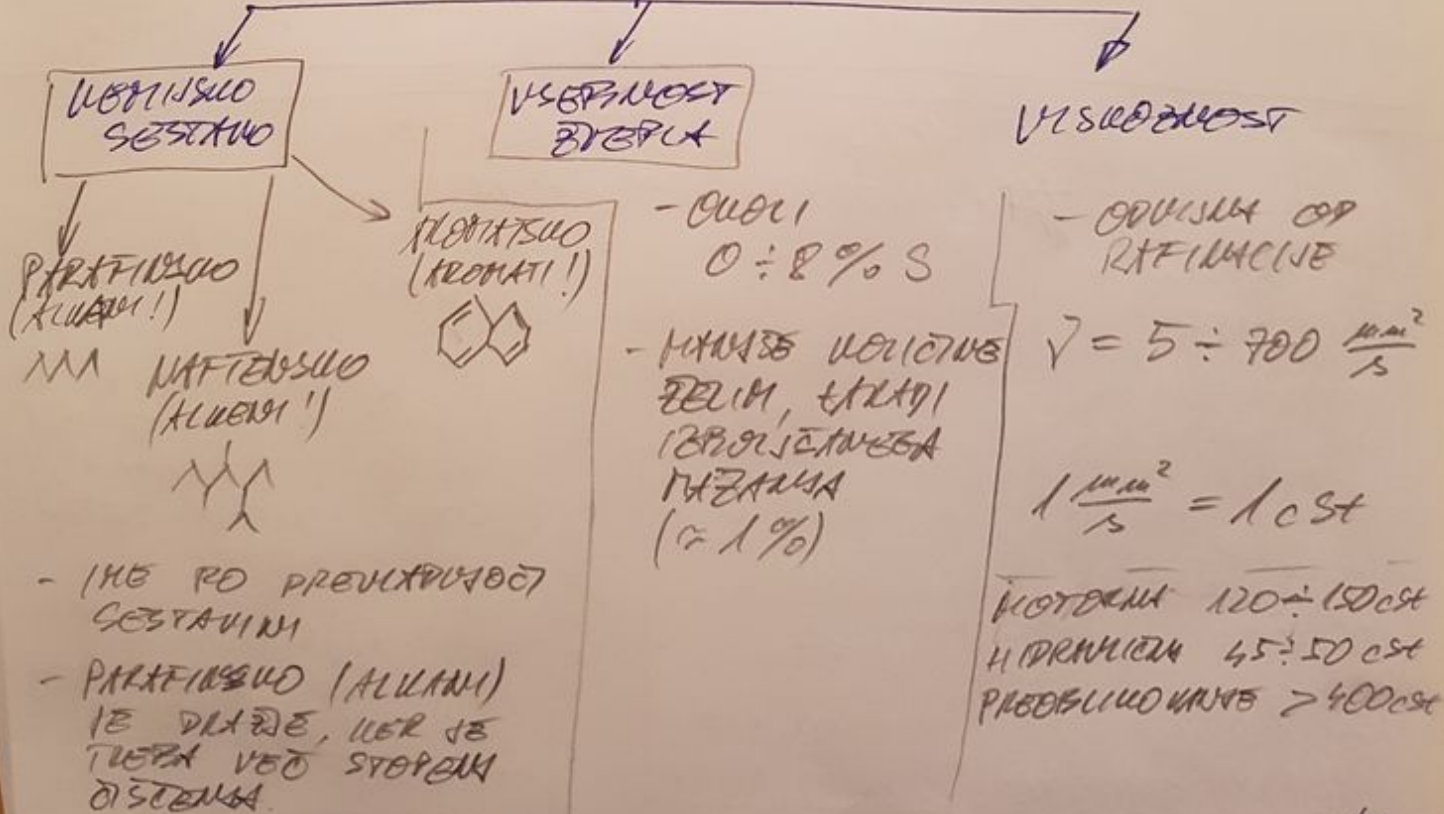 KEMIJSKO
SESTAVO
PARAFINSKO
(ALKANI!)
NAFTENSKO
(ALKENI!)
AROMATSKO
(AROMATI!)
- IME PO PREVLADUJOČI
SESTAVINI
- PARAFINSKO (ALKANI)
JE DRAŽJE, KER JE
TREBA VEČ STOPENJ
ČIŠČENJA
VSEBNOST
ŽVEPLA
- OKOLI
0 ÷ 8 % S
- MANJŠE KOLIČINE
ŽELIM, ZARADI
IZBOLJŠANEGA
MAZANJA
(≈ 1 %)
VISKOZNOST
- ODVISNA OD
RAFINACIJE
ν = 5 ÷ 700 mm²/s
1 mm²/s = 1 cSt
MOTORNA 120 ÷ 150 cSt
HIDRAVLIČNA 45 ÷ 50 cSt
PREOBLIKOVANJE > 400 cSt